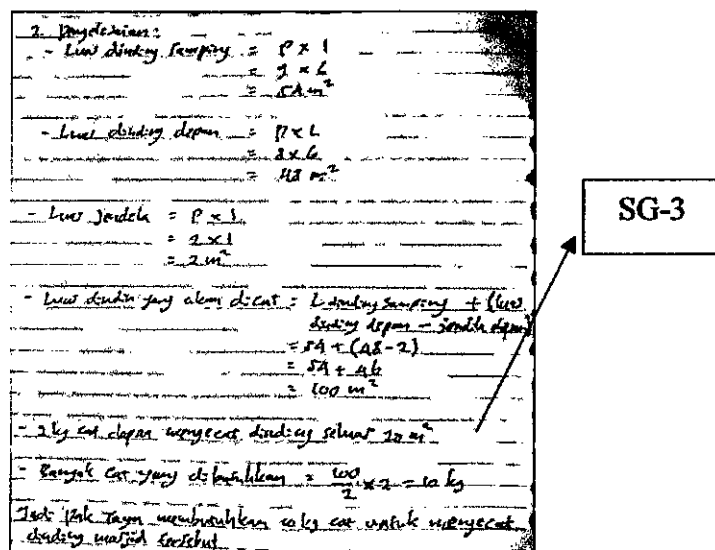 2. Penyelesaian:
- Luas dinding samping = P x l
= 9 x 6
= 54 m²
- Luas dinding depan = P x L
= 8 x 6
= 48 m²
- Luas jendela = P x l
= 2 x 1
= 2 m²
- Luas dindin yang akan dicat = L dinding samping + (luas
dinding depan - jendela depan)
= 54 + (48 - 2)
= 54 + 46
= 100 m²
- 2 kg cat dapan mengecat dinding seluas 20 m²
- Banyak cat yang dibutuhkan = 100/2 x 2 = 10 kg
Jadi Pak membutuhkan 10 kg cat untuk mengecat
dinding masjid tersebut
SG-3